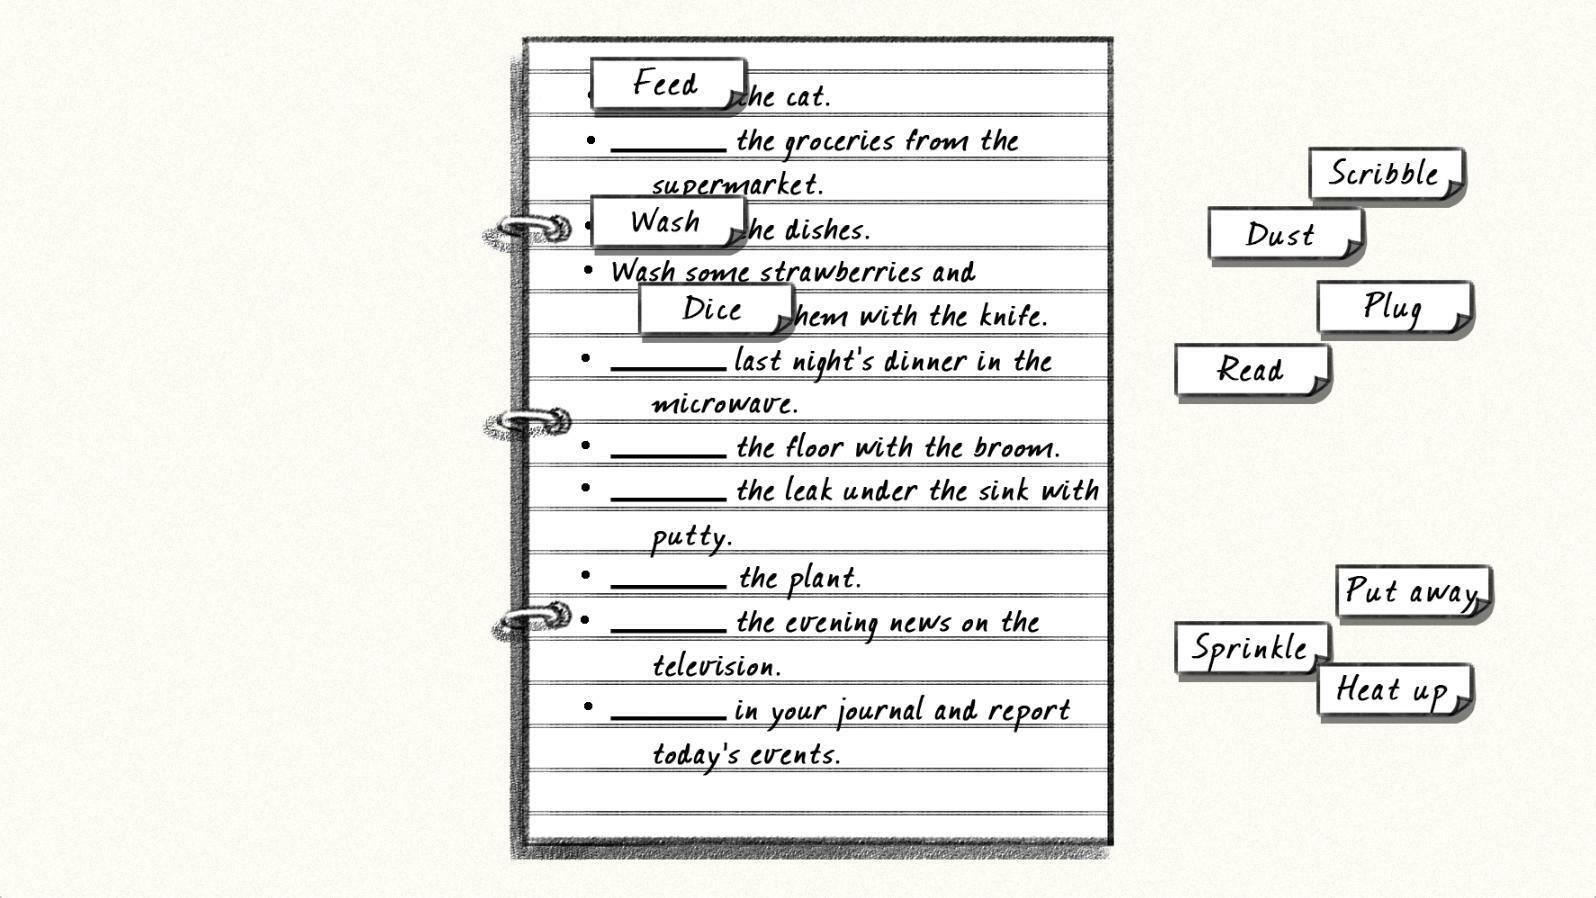 Feed he cat.
the groceries from the
supermarket.
Wash he dishes.
Wash some strawberries and
Dice hem with the knife.
last night's dinner in the
microwave.
the floor with the broom.
the leak under the sink with
putty.
the plant.
the evening news on the
television.
in your journal and report
today's events.
Scribble
Dust
Plug
Read
Put away
Sprinkle
Heat up